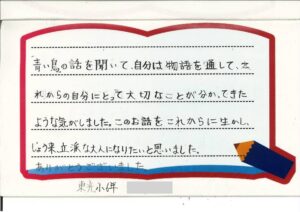 青い鳥の話を聞いて、自分は物語を通して、こ
れからの自分にとって大切なことが分かってきた
ような気がしました。このお話をこれからに生かし、
しょう来、立派な大人になりたいと思いました。
ありがとうございました
東光小6年